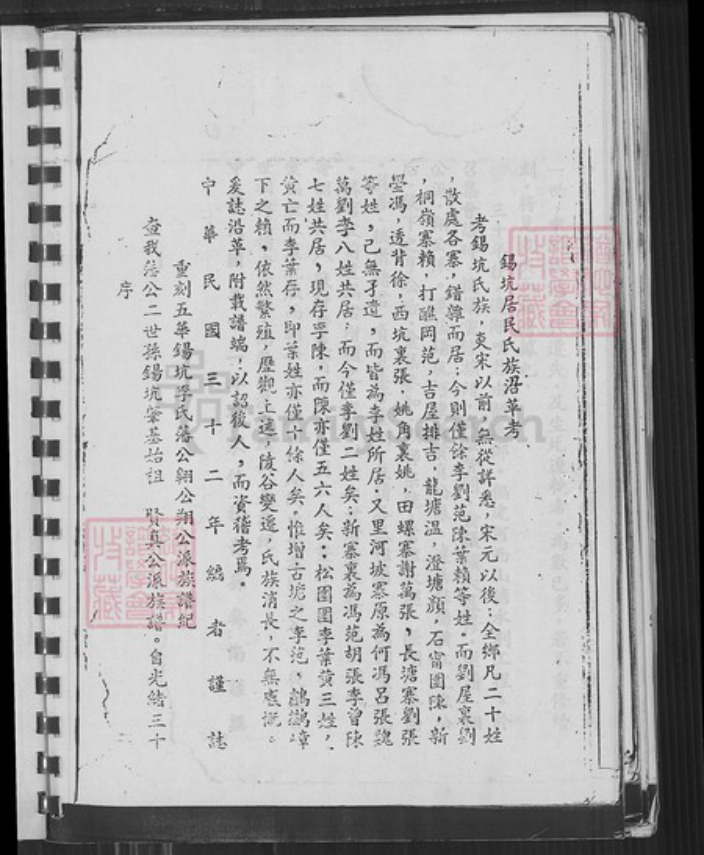 錫坑居民氏族沿革考
考錫坑氏族，爰宋以前，無從詳悉，宋元以後，全鄉凡二十姓
，散處各寨，錯雜而居；今則僅餘李劉范陳葉賴等姓。而劉屋裏劉
，桐嶺寨賴，打醮岡范，吉屋排吉，龍塘溫，澄塘顏，石甯圍陳，新
壆馮，透背徐，西坑裏張，姚角裏姚，田螺寨謝萬張，長塘寨劉張
等姓，已無孑遺，而皆為李姓所居。又里河坡寨原為何馮呂張魏
萬劉李八姓共居；而今僅李劉二姓矣；新寨裏為馮范胡張李曾陳
七姓共居，現存李陳，而陳亦僅五六人矣；松園圍李葉黃三姓，
黃亡而李葉存，即葉姓亦僅十餘人矣。惟增古塘之李范，鷓鴣嶂
下之賴，依然繁殖，歷觀上述，陵谷變遷，氏族消長，不無感慨。
爰誌沿革，附載譜端，以詔後人，而資稽考焉。
中華民國三十二年總者謹誌
重刻五華錫坑李氏蕃公翱公翔公派族譜紀
序
查我蕃公二世孫錫坑肇基始祖 賢真公派族譜。自光緒三十
FamilySearch